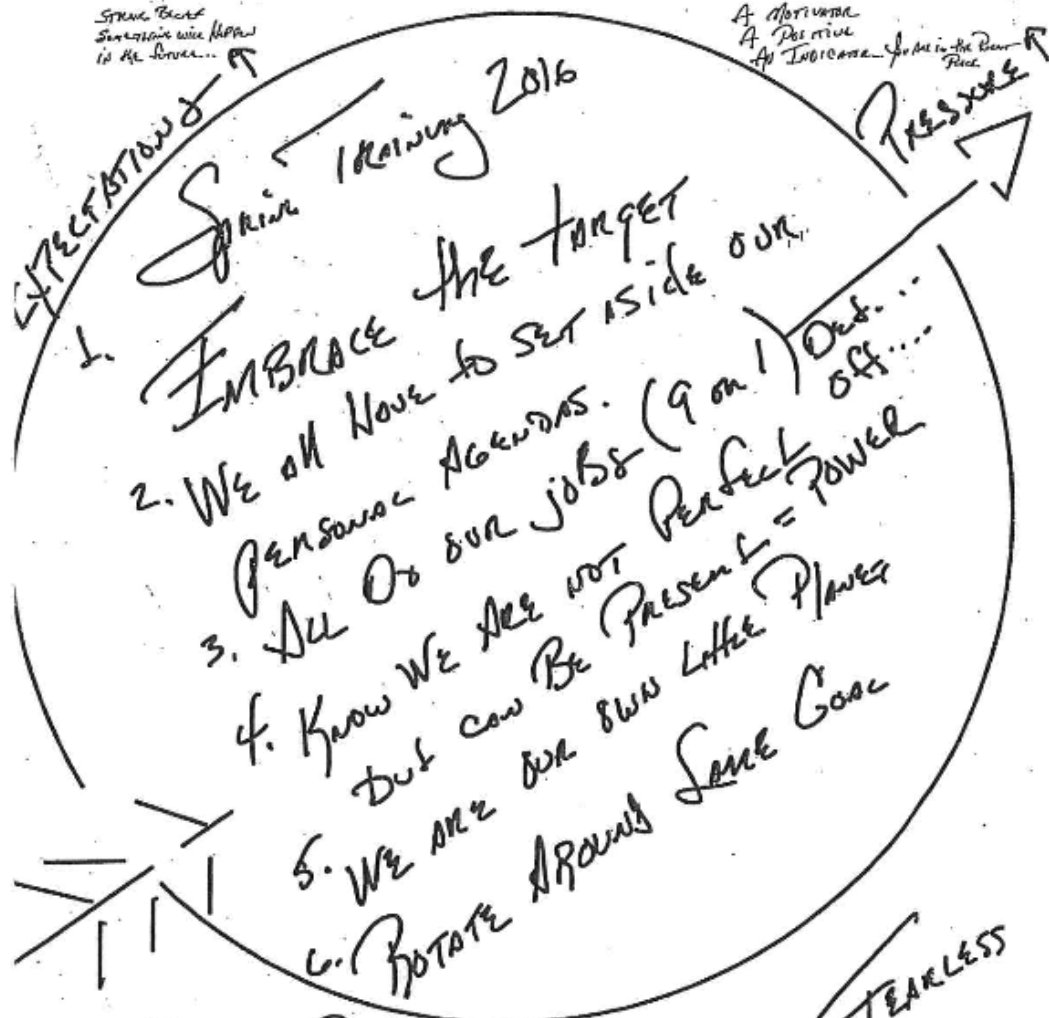 Strong Belief
Something will Happen
in the future...
A Motivator
A Positive
An Indicator you are in the Right
Place
EXPECTATIONS
PRESSURE
Spring Training 2016
1. EMBRACE the TARGET
2. WE All HAVE to SET ASide OUR
PERSONAL AGENDAS.
3. ALL Do OUR jOBS (9 on 1) Def...
Off....
4. KNOW WE ARE NOT PERFECT
but can BE PRESENT = POWER
5. WE ARE OUR OWN Little PlANET
6. ROTATE AROUND SAME GOAL
FEARLESS